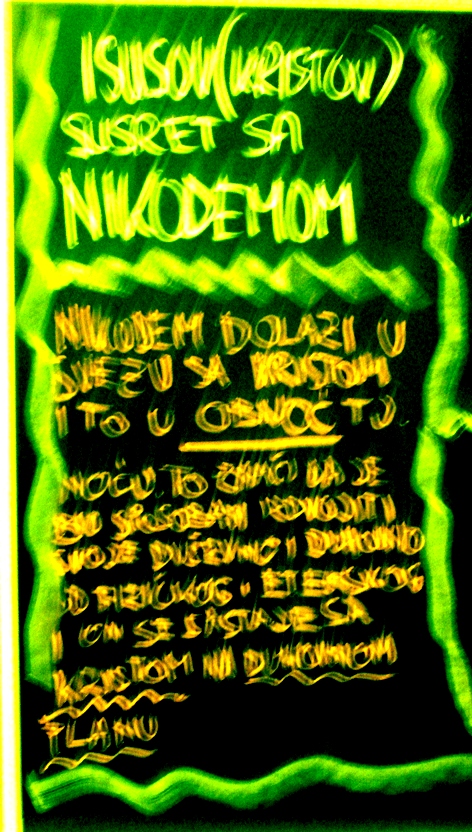 ISUSOV (KRISTOV)
SUSRET SA
NIKODEMOM
NIKODEM DOLAZI U
SVEZU SA KRISTOM
I TO U OBNOĆ TJ.
NOĆU. TO ZNAČI DA JE
BIO SPOSOBAN ODVOJITI
SVOJE DUŠEVNO I DUHOVNO
OD FIZIČKOG I ETERSKOG
I ON SE SASTAJE SA
KRISTOM NA DUHOVNOM
PLANU